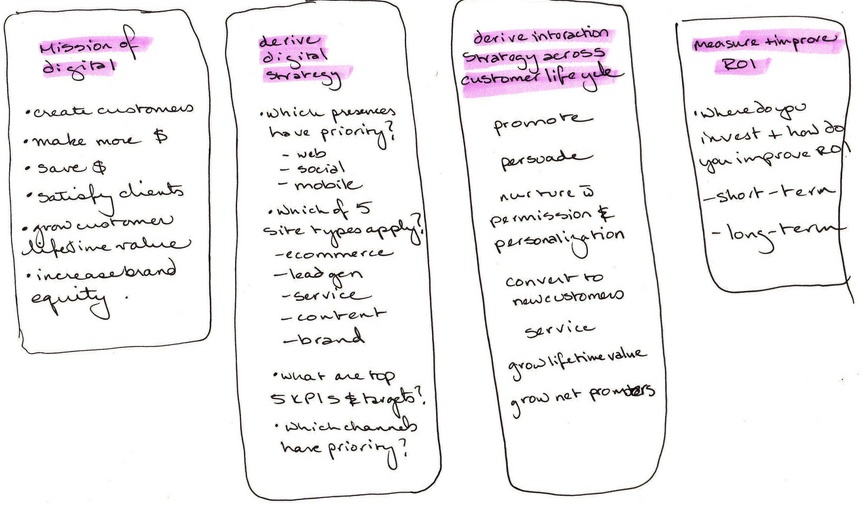 Mission of
digital
• create customers
• make more $
• save $
• satisfy clients
• grow customer
lifetime value
• increase brand
equity.
derive
digital
strategy
• which presences
have priority?
- web
- social
- mobile
• which of 5
site types apply?
- ecommerce
- lead gen
- service
- content
- brand
• what are top
5 KPIS & targets?
• which channels
have priority?
derive interaction
strategy across
customer lifecycle
promote
persuade
nurture w̄
permission &
personalization
convert to
new customers
service
grow lifetime value
grow net promoters
measure + improve
ROI
• where do you
invest + how do
you improve ROI
- short-term
- long-term